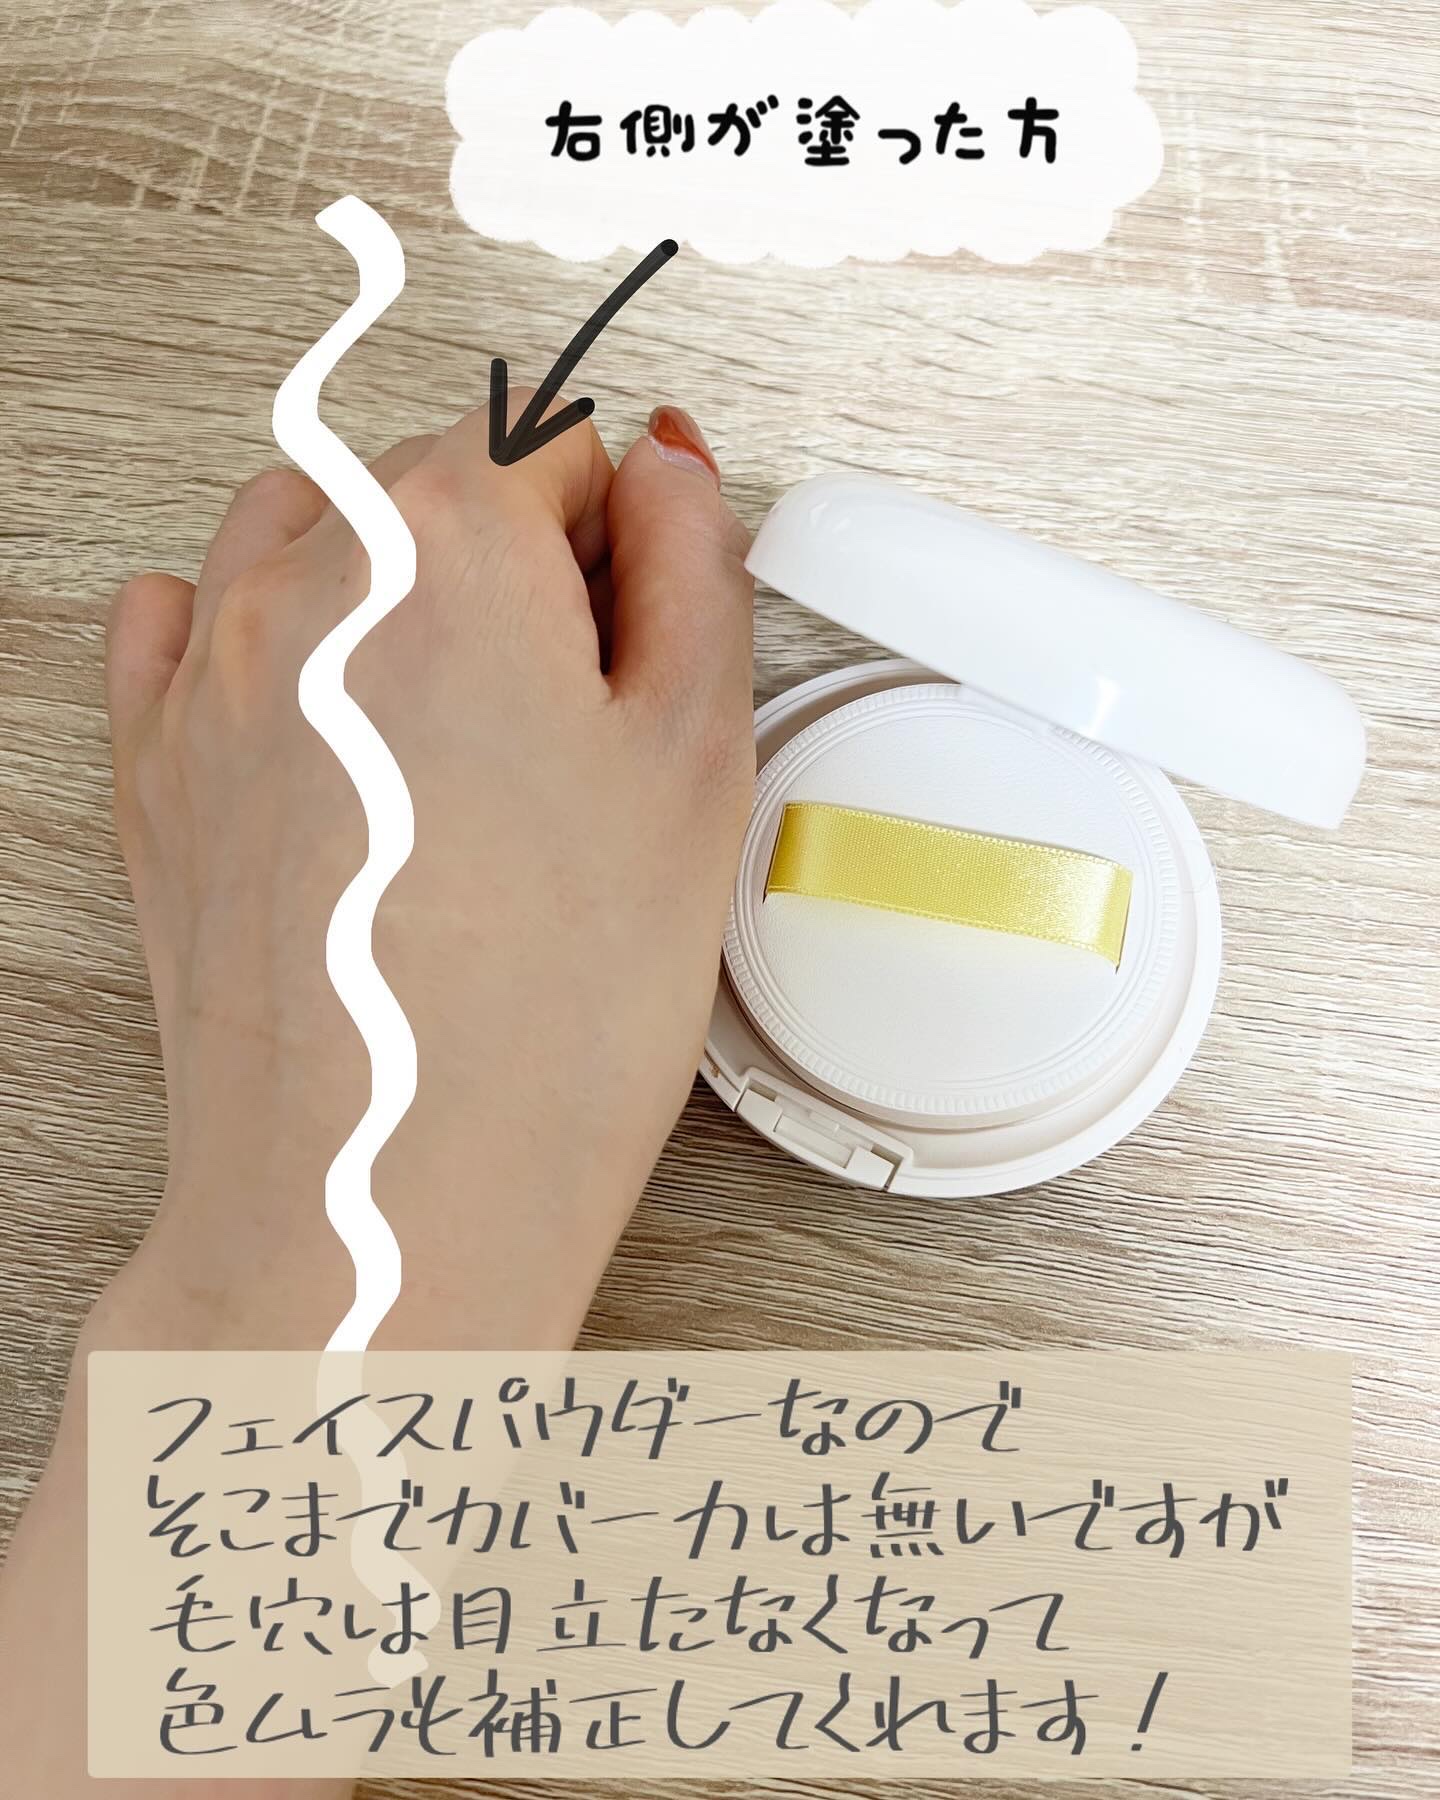 右側が塗った方
フェイスパウダーなので
そこまでカバー力は無いですが
毛穴は目立たなくなって
色ムラも補正してくれます！